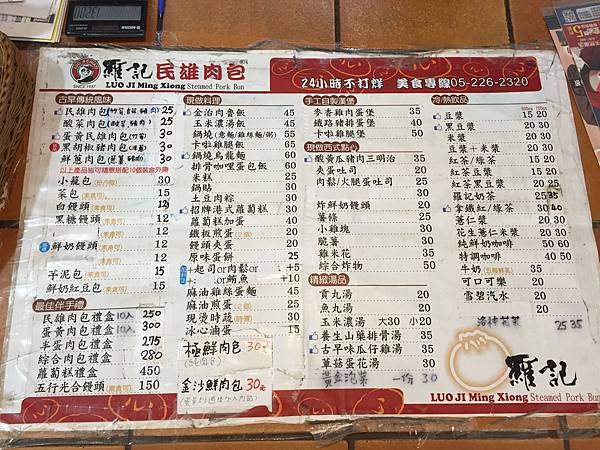 羅記民雄肉包
LUO JI Ming Xiong Steamed Pork Bun
SINCE 1957
24小時不打烊 美食專線05-226-2320
古早傳統風味
民雄肉包(竹筍 豬肉) 25
酸菜肉包 25
蛋黃民雄肉包(竹筍) 30
黑胡椒豬肉包(洋蔥) 30
鮮蔥肉包 30
以上產品皆可隨意搭配10個裝盒外帶
小籠包 30
菜包(素食可) 15
白饅頭(素食可) 12
黑糖饅頭(素食可) 12
鮮奶饅頭(素食可) 12
芋泥包(素食可) 15
鮮奶紅豆包(素食可) 15
最佳伴手禮
民雄肉包禮盒 10入 250
蛋黃肉包禮盒 10入 300
半蛋肉包禮盒 275
綜合肉包禮盒 280
蘿蔔糕禮盒 450
五行光合饅頭(素食可) 150
現做料理
金治肉魯飯 30
玉米濃湯飯 50
鍋燒(意麵/雞絲麵/粥) 55
卡啦雞腿飯 60
鍋燒烏龍麵 60
排骨咖哩蛋包飯 60
米糕 25
鍋貼 30
土豆肉粽 30
招牌港式蘿蔔糕 30
蘿蔔糕加蛋 40
鐵板煎蛋 20
饅頭夾蛋 20
原味蛋餅 25
+起司or肉鬆or +5
+ or鮪魚 +10
麻油雞絲蛋麵 45
麻油煎蛋 20
現燙時蔬 30
冰心滷蛋 10
極鮮肉包 30元
金沙鮮肉包 30元
手工自製漢堡
麥香雞肉蛋堡 35
鐵路豬排蛋堡 35
卡啦雞腿堡 50
現做西式點心
酸黃瓜豬肉三明治 35
夾蛋吐司 20
肉鬆/火腿蛋吐司 25
炸鮮奶饅頭 20
薯條 25
小雞塊 30
脆薯 30
雞米花 35
綜合炸物 50
精緻湯品
貢丸湯 20
魚丸湯 20
玉米濃湯 大30 小20
養生山藥排骨湯 35
古早味瓜仔雞湯 35
草菇蛋花湯 30
黃金泡菜 一份 30
冷熱飲品
豆漿 15 20
黑豆漿 20 30
米漿 20 30
豆漿+米漿 20 30
紅茶/綠茶 15 20
紅茶豆漿 15 20
紅茶黑豆漿 20 25
羅記奶茶 25 35
拿鐵紅/綠茶 30 40
薏仁漿 20 30
花生薏仁米漿 20 30
純鮮奶咖啡 40 50
特調咖啡 40 50
牛奶 35
可口可樂 20
雪碧汽水 20
洛神花茶 25 35
羅記
LUO JI Ming Xiong Steamed Pork Bun